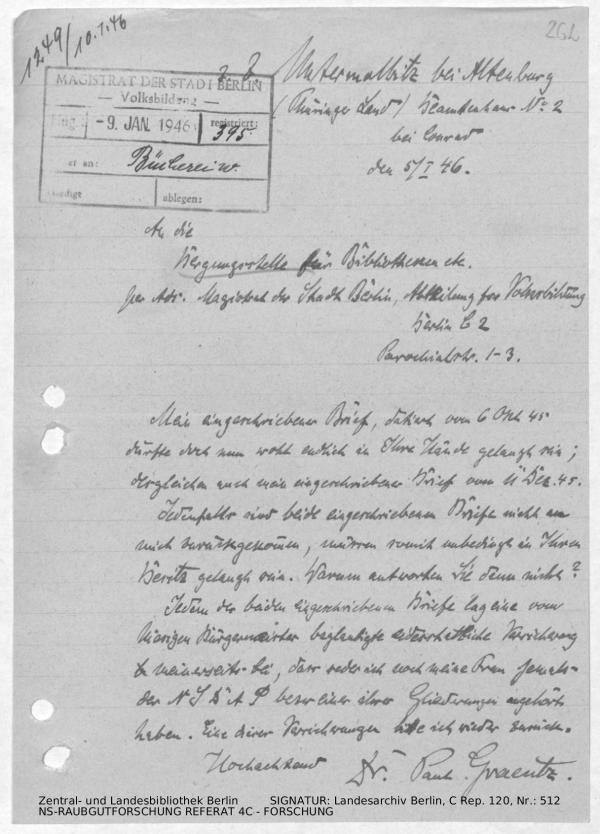 1249/10.1.46
262
MAGISTRAT DER STADT BERLIN
— Volksbildung —
-9. JAN. 1946
registriert:
395
er an: Bücherei
ablegen:
z. Z. Untermolbitz bei Altenburg
(Thüringer Land) Beamtenhaus No 2
bei Conrad
den 5/I 46.
An die
Bergungsstelle für Bibliotheken etc.
per Adr. Magistrat der Stadt Berlin, Abteilung für Volksbildung
Berlin C 2
Parochialstr. 1-3.
Mein eingeschriebener Brief, datiert vom 6 Okt 45
dürfte doch nun wohl endlich in Ihre Hände gelangt sein;
dergleichen auch mein eingeschriebener Brief vom 11 Dez. 45.
Jedenfalls sind beide eingeschriebenen Briefe nicht an
mich zurückgekommen, müssen somit unbedingt in Ihren
Besitz gelangt sein. Warum antworten Sie denn nicht?
Jedem der beiden eingeschriebenen Briefe lag eine vom
hiesigen Bürgermeister beglaubigte eidesstattliche Versicherung
meinerseits bei, dass weder ich noch meine Frau jemals
der NSDAP bezw einer ihrer Gliederungen angehört
haben. Eine dieser Versicherungen ich wieder zurück.
Hochachtend Dr. Paul Graentz.
Zentral- und Landesbibliothek Berlin SIGNATUR: Landesarchiv Berlin, C Rep. 120, Nr.: 512
NS-RAUBGUTFORSCHUNG REFERAT 4C - FORSCHUNG